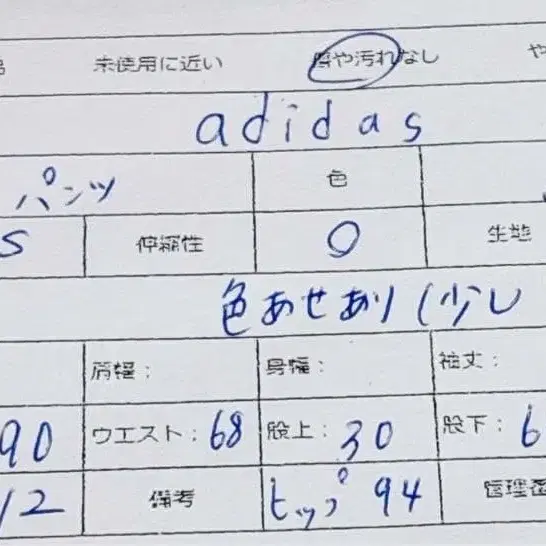 未使用に近い 傷や汚れなし や
adidas
パンツ 色
S 伸縮性 ○ 生地
色あせあり(少し
肩幅: 身幅: 袖丈:
90 ウエスト:68 股上:30 股下:6
12 備考 ヒップ 94 管理番